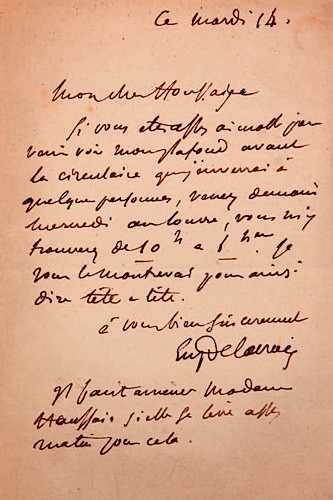 Ce mardi 14.
Mon cher Houssaye
Si vous etes assez aimable pour
venir voir mon plafond avant
la circulaire que j'enverrai à
quelques personnes, venez demain
mercredi au louvre, vous m'y
trouverez de 10 h a 1 heure. Je
vous le montrerai pour ainsi
dire tête a tête.
à vous bien sincerement
Eug Delacroix
Il faut amener Madame
Houssaye si elle se lève assez
matin pour cela.